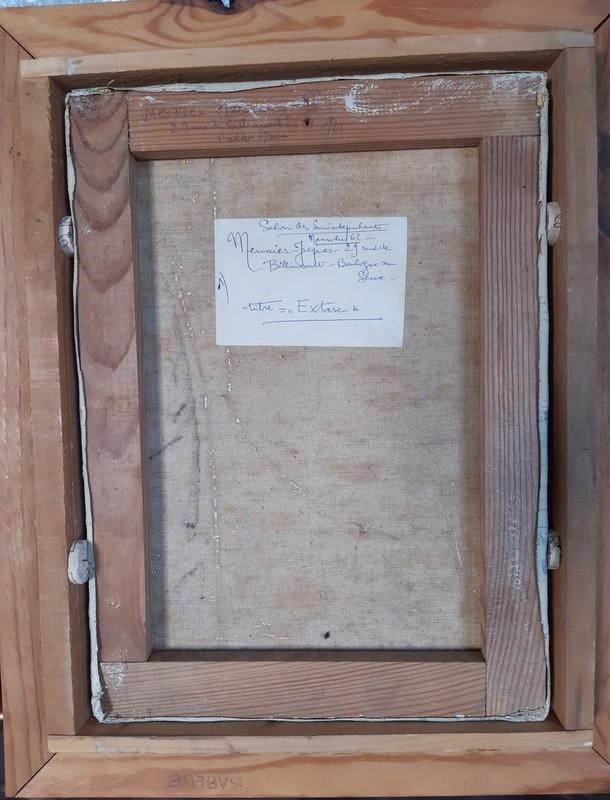 MEUNIER
29 rue de
Salon des Surindépendants
Novembre 62 —
Meunier-Jacques - 29 rue de
Billancourt - Boulogne sur
Seine -
titre = " Extase "
ISABELLE